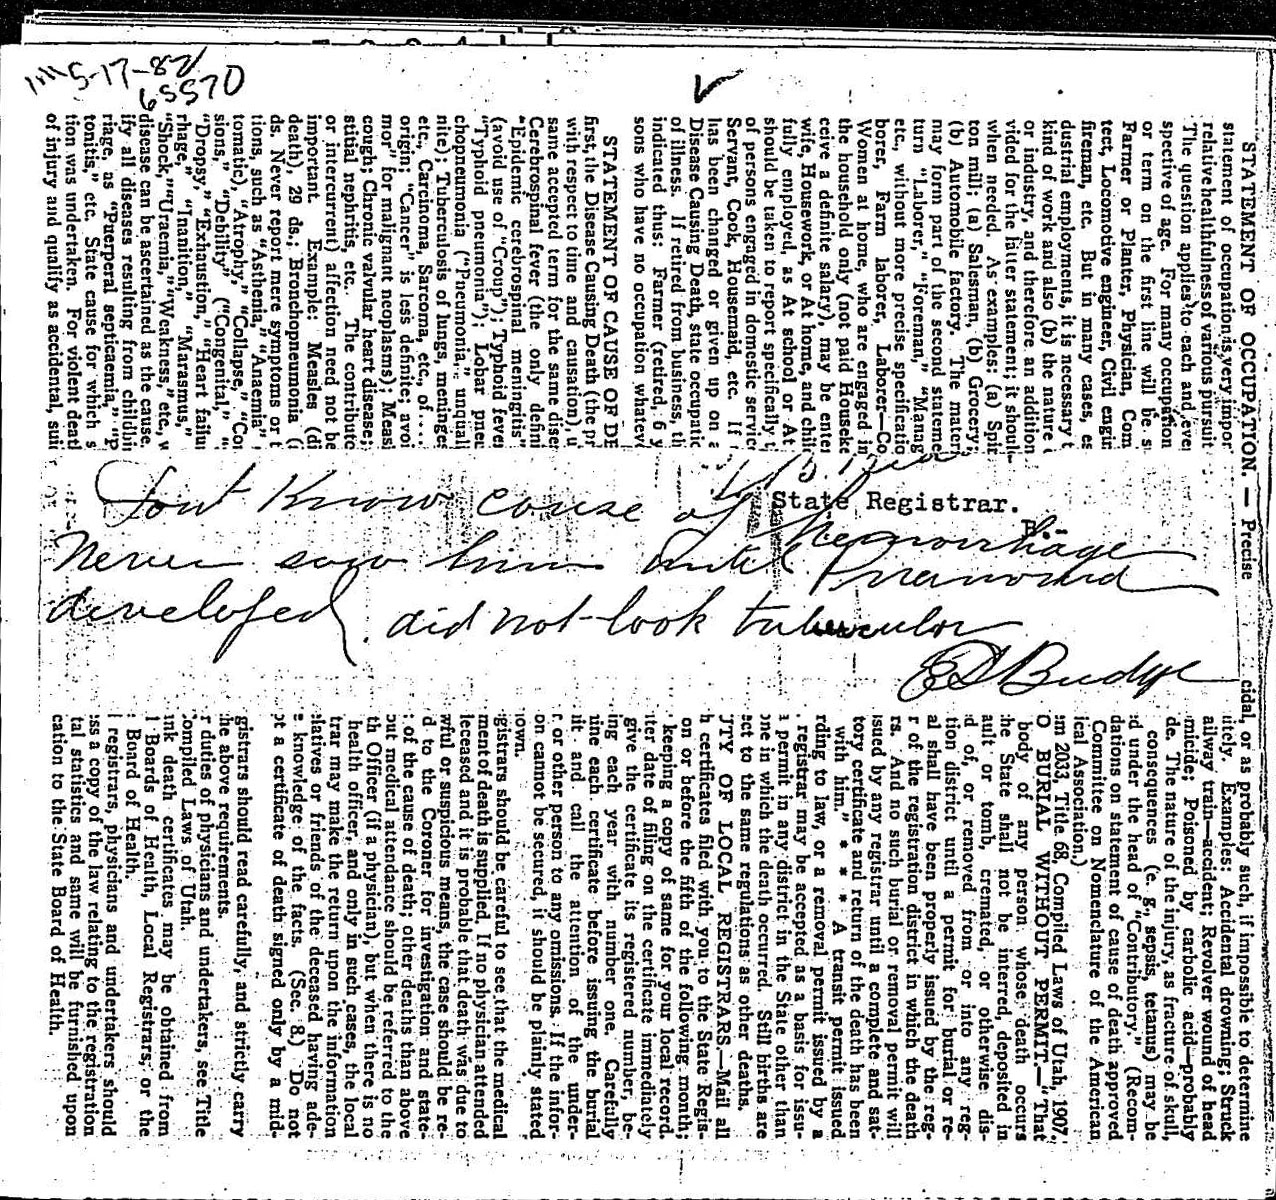 5-17-82
65570
STATEMENT OF OCCUPATION. — Precise
statement of occupation is very impor
relative healthfulness of various pursuit
The question applies to each and ever
spective of age. For many occupation
or term on the first line will be s
Farmer or Planter, Physician, Com
tect, Locomotive engineer, Civil engin
fireman, etc. But in many cases, es
dustrial employments, it is necessary t
kind of work and also (b) the nature
or industry, and therefore an addition
vided for the latter statement; it shoul
when needed. As examples: (a) Spin
ton mill; (a) Salesman, (b) Grocery;
(b) Automobile factory. The materi
may form part of the second stateme
turn "Laborer," "Foreman," "Manag
etc., without more precise specificatio
borer, Farm laborer, Laborer—Co
Women at home, who are engaged in
the household only (not paid Houseke
ceive a definite salary), may be enter
wife, Housework, or At home, and chil
fully employed, as At school or At
should be taken to report specifically t
of persons engaged in domestic servic
Servant, Cook, Housemaid, etc. If
has been changed or given up on a
Disease Causing Death, state occupati
of illness. If retired from business, th
indicated thus: Farmer (retired, 6 y
sons who have no occupation whatev
STATEMENT OF CAUSE OF DE
first, the Disease Causing Death (the pr
with respect to time and causation), u
same accepted term for the same diser
Cerebrospinal fever (the only defini
"Epidemic cerebrospinal meningitis"
(avoid use of "Croup"); Typhoid feve
"Typhoid pneumonia"); Lobar pneu
chopneumonia ("Pneumonia," unquali
nite); Tuberculosis of lungs, meninges
etc., Carcinoma, Sarcoma, etc., of . . . .
origin; "Cancer" is less definite; avoi
mor" for malignant neoplasms); Measl
cough; Chronic valvular heart disease;
stitial nephritis, etc. The contributo
or intercurrent) affection need not be
important. Example: Measles (di
death), 29 ds.; Bronchopneumonia (i
ds. Never report mere symptoms or t
tions, such as "Asthenia," "Anaemia"
tomatic), "Atrophy," "Collapse," "Co
sions," "Debility" ("Congenital," "
"Dropsy," "Exhaustion," "Heart failur
rhage," "Inanition," "Marasmus,"
"Shock," "Uraemia," "Weakness," etc., w
disease can be ascertained as the cause.
ify all diseases resulting from childbi
riage, as "Puerperal septicaemia," "P
tonitis," etc. State cause for which s
tion was undertaken. For violent death
of injury and qualify as accidental, sui
State Registrar.
Dont Know cause of Hemorrhage
Never saw him until Pneumonia
developed did not look tubercular
ED Budge
cidal, or as probably such, if impossible to determine
nitely. Examples: Accidental drowning; Struck
ailway train—accident; Revolver wound of head
micide; Poisoned by carbolic acid—probably
de. The nature of the injury, as fracture of skull,
consequences (e. g., sepsis, tetanus) may be
d under the head of "Contributory." (Recom-
dations on statement of cause of death approved
Committee on Nomenclature of the American
ical Association.)
om 2033, Title 68, Compiled Laws of Utah, 1907.
O BURIAL WITHOUT PERMIT.—"That
body of any person whose death occurs
he State shall not be interred, deposited in
ault or tomb, cremated, or otherwise dis-
d of, or removed from or into any reg-
tion district until a permit for burial or re-
al shall have been properly issued by the reg-
r of the registration district in which the death
rs. And no such burial or removal permit will
issued by any registrar until a complete and sat-
tory certificate and return of the death has been
with him." * * * A transit permit issued
rding to law, or a removal permit issued by a
registrar may be accepted as a basis for issu-
a permit in any district in the State other than
one in which the death occurred. Still births are
ect to the same regulations as other deaths.
UTY OF LOCAL REGISTRARS.—Mail all
h certificates filed with you to the State Regis-
on or before the fifth of the following month;
keeping a copy of same for your local record.
iter date of filing on the certificate immediately
give the certificate its registered number, be-
ing each year with number one. Carefully
ine each certificate before issuing the burial
it and call the attention of the under-
r or other person to any omissions. If the infor-
on cannot be secured, it should be plainly stated
own.
gistrars should be careful to see that the medical
ment of death is supplied. If no physician attended
leceased and it is probable that death was due to
wful or suspicious means, the case should be re-
d to the Coroner for investigation and state-
of the cause of death; other deaths than above
out medical attendance should be referred to the
th Officer (if a physician), but when there is no
health officer, and only in such cases, the local
trar may make the return upon the information
latives or friends of the deceased having ade-
e knowledge of the facts. (Sec. 8.) Do not
pt a certificate of death signed only by a mid-
gistrars should read carefully, and strictly carry
he above requirements.
r duties of physicians and undertakers, see Title
ompiled Laws of Utah.
ink death certificates may be obtained from
l Boards of Health, Local Registrars, or the
Board of Health.
l registrars, physicians and undertakers should
ss a copy of the law relating to the registration
tal statistics and same will be furnished upon
cation to the State Board of Health.